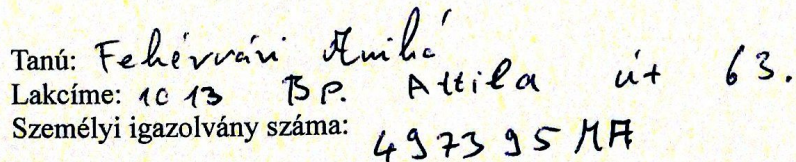 Tanú: Fehérvári Anikó
Lakcíme: 1013 BP. Attila út 63.
Személyi igazolvány száma: 497395MA